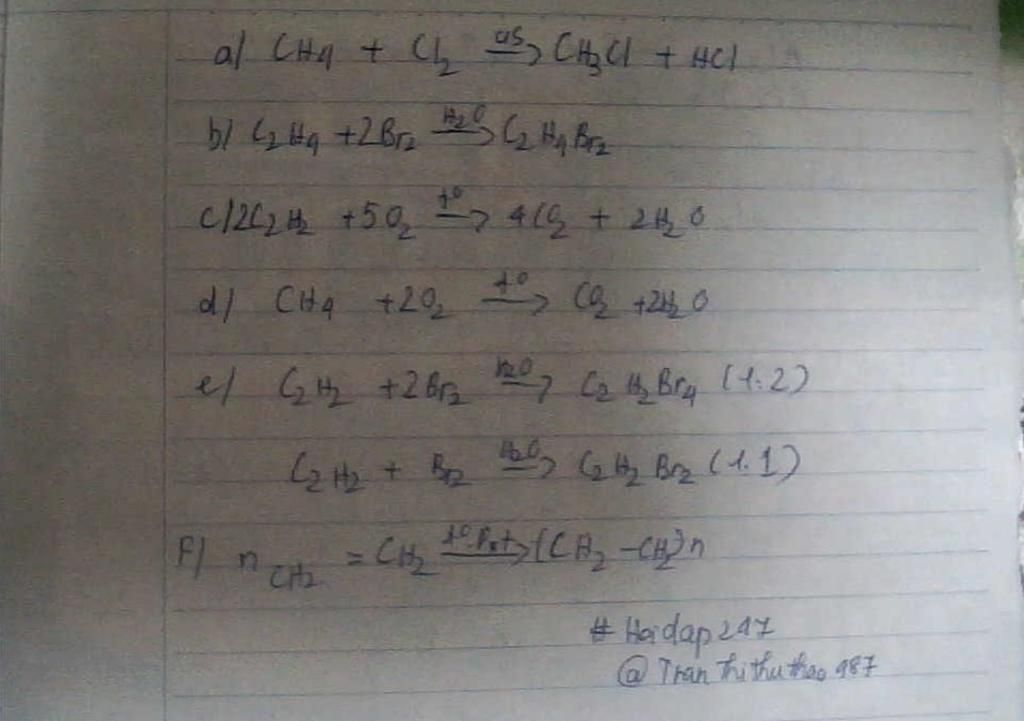 a/ CH4 + Cl2 as→ CH3Cl + HCl
b/ C2H4 + 2Br2 H2O→ C2H4Br2
c/ 2C2H2 + 5O2 t°→ 4CO2 + 2H2O
d/ CH4 + 2O2 t°→ CO2 + 2H2O
e/ C2H2 + 2Br2 H2O→ C2H2Br4 (1:2)
C2H2 + Br2 H2O→ C2H2Br2 (1:1)
F/ nCH2 = CH2 t°.P.xt→ (CH2 - CH2)n
# Hoidap247
@ Tranthithuthao987